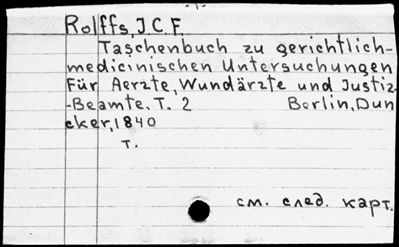 Rolffs, J.C.F.
Taschenbuch zu gerichtlich-
medicinischen Untersuchungen
Für Aerzte, Wundärzte und Justiz
-Beamte. T. 2 Berlin, Dun
cker, 1840
T.
см. след. карт.